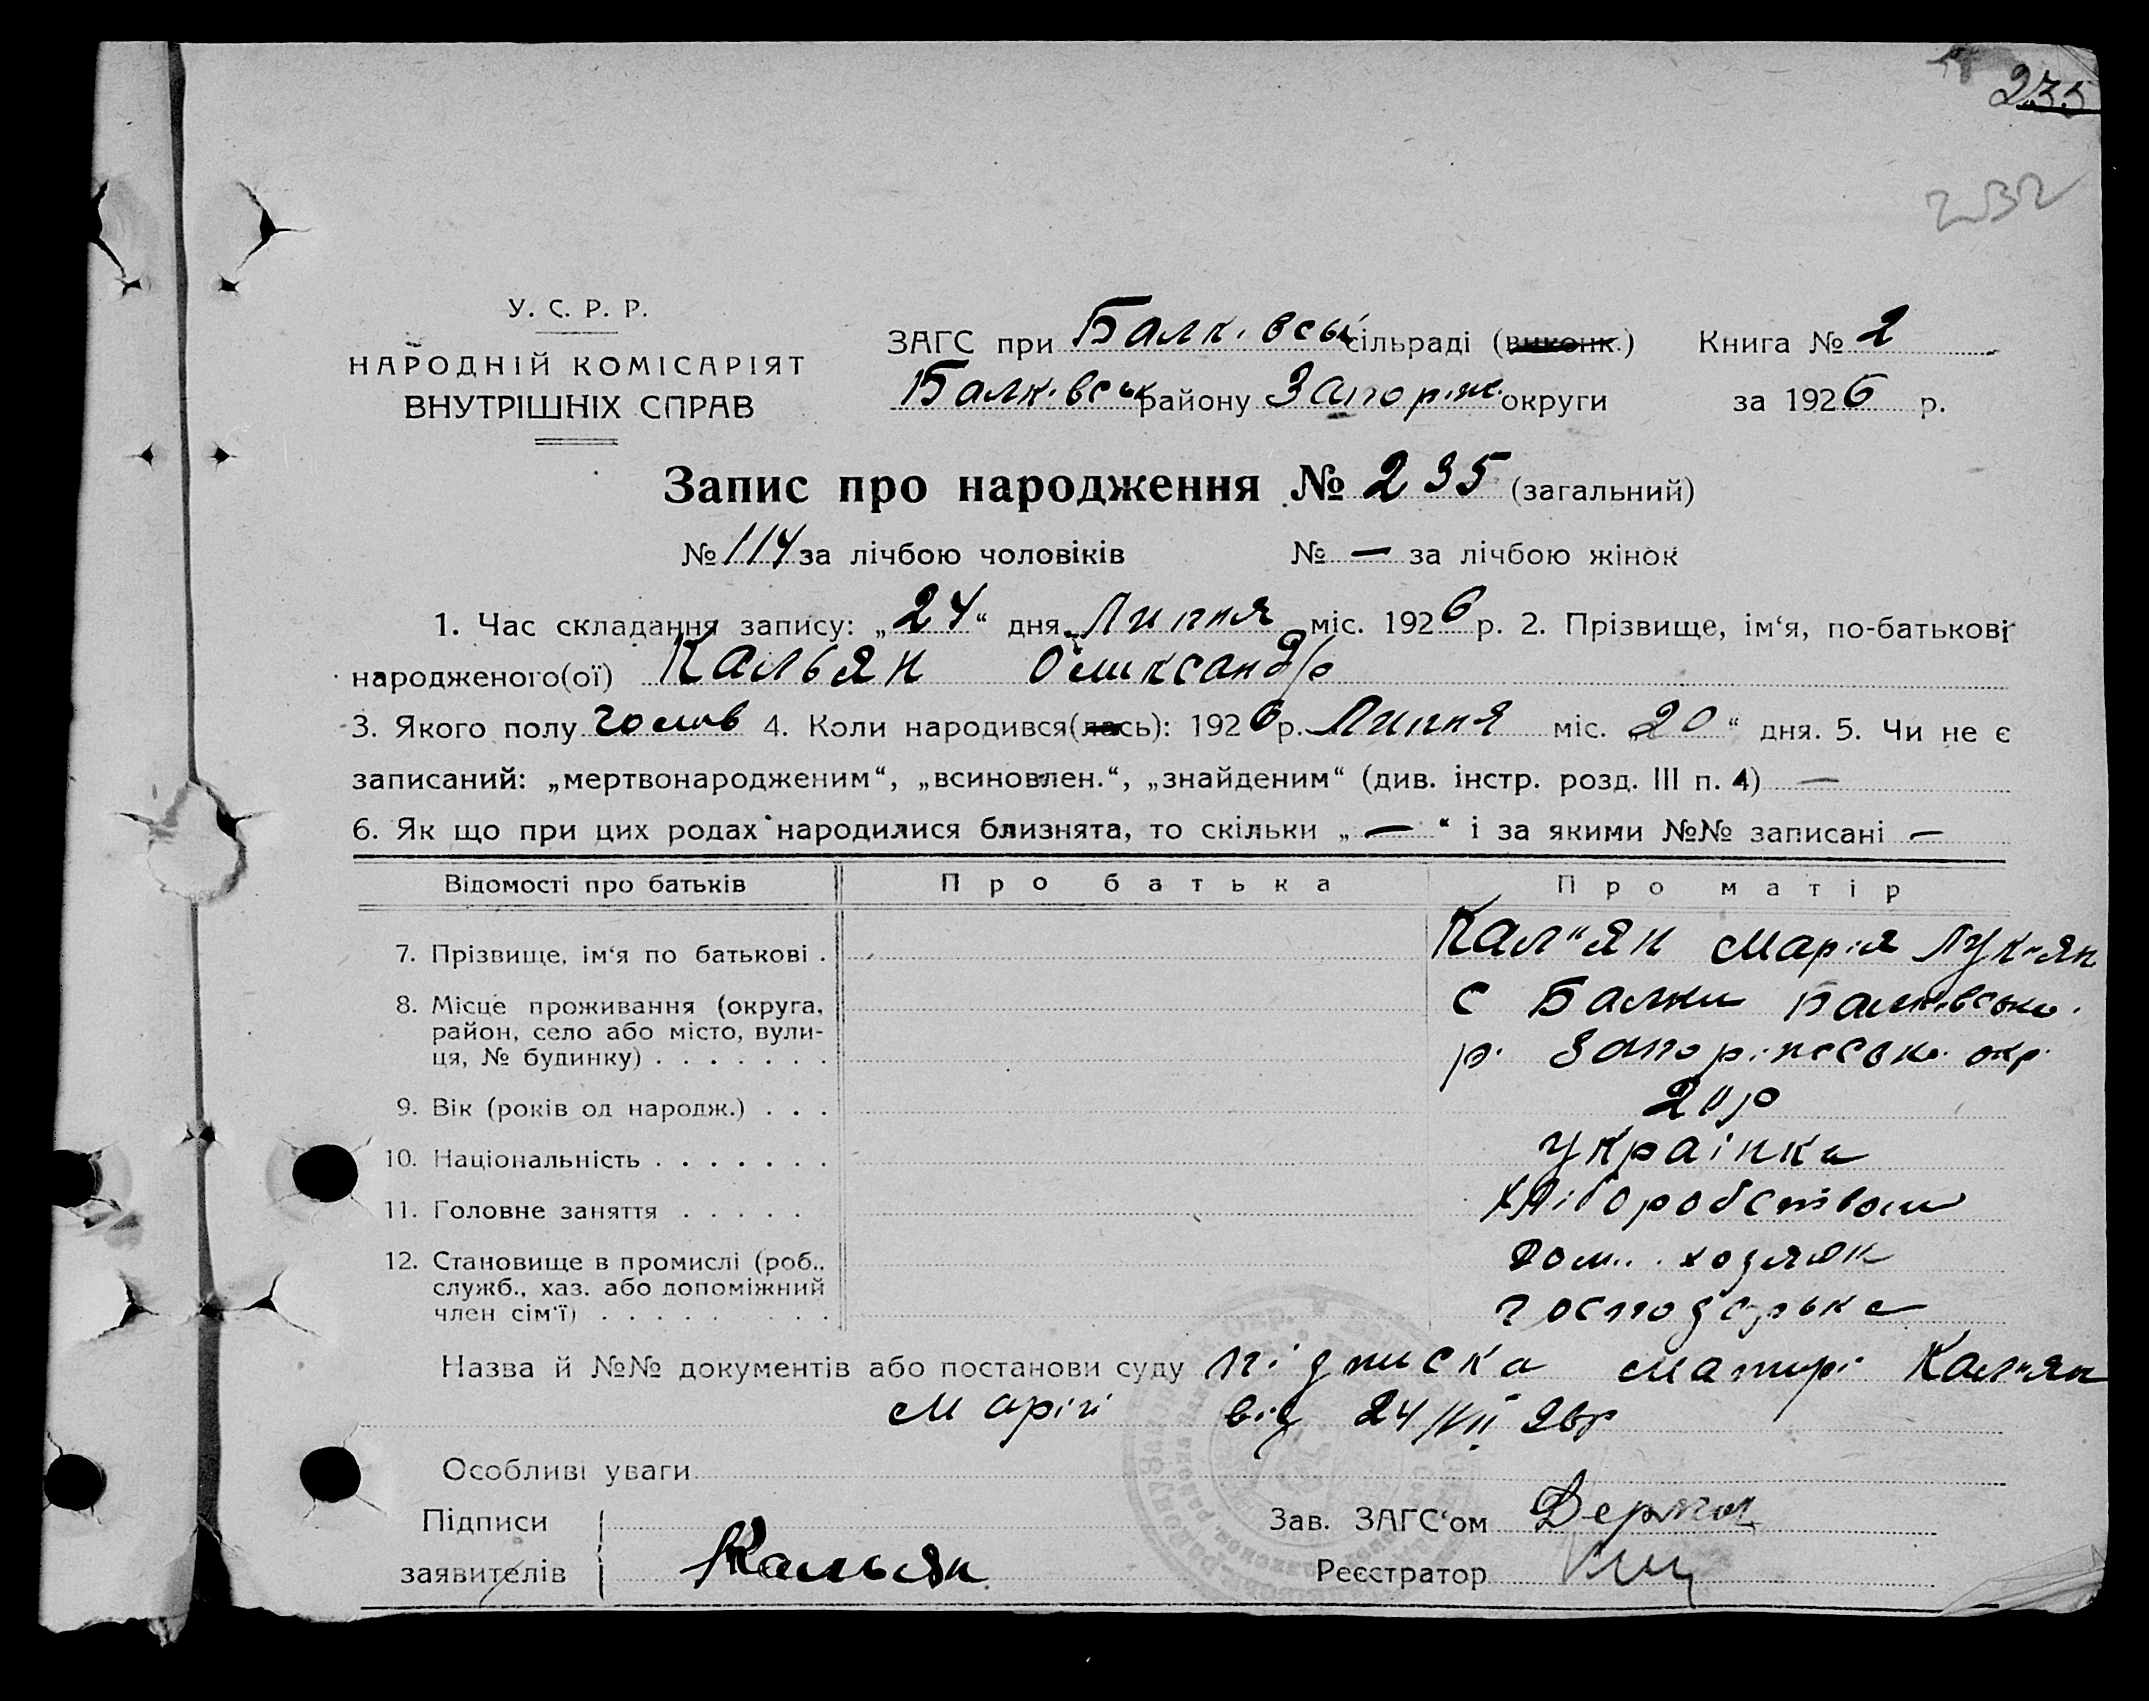 235
232
У. С. Р. Р.
НАРОДНІЙ КОМІСАРІЯТ
ВНУТРІШНІХ СПРАВ
ЗАГС при Балківськ сільраді (виконк.) Книга № 2
Балківськ району Запоріж. округи за 1926 р.
Запис про народження № 235 (загальний)
№ 114 за лічбою чоловіків № — за лічбою жінок
1. Час складання запису: „24“ дня Липня міс. 1926 р. 2. Прізвище, ім‘я, по-батькові
народженого(ої) Кальян Олександр
3. Якого полу чолов 4. Коли народився(лась): 1926 р. Липня міс. „20“ дня. 5. Чи не є
записаний: „мертвонародженим“, „всиновлен.“, „знайденим“ (див. інстр. розд. III п. 4) —
6. Як що при цих родах народилися близнята, то скільки „ — “ і за якими №№ записані —
Відомості про батьків Про батька Про матір
7. Прізвище, ім‘я по батькові . Кал"ян Марія Лук"ян
8. Місце проживання (округа, с Балки Балківськ.
район, село або місто, вули-
ця, № будинку) . . . . . . . р. Запоріжськ. окр.
9. Вік (років од народж.) . . . 20 р
10. Національність . . . . . . . Українка
11. Головне заняття . . . . . Хліборобством
12. Становище в промислі (роб., дом. хозяйк
служб., хаз. або допоміжний
член сім‘ї) . . . . . . . . господарька
Назва й №№ документів або постанови суду підписка матері Кал"ян
Марії від 24/VII 26р
Особливі уваги
Підписи Зав. ЗАГС‘ом
заявителів Кальян Реєстратор